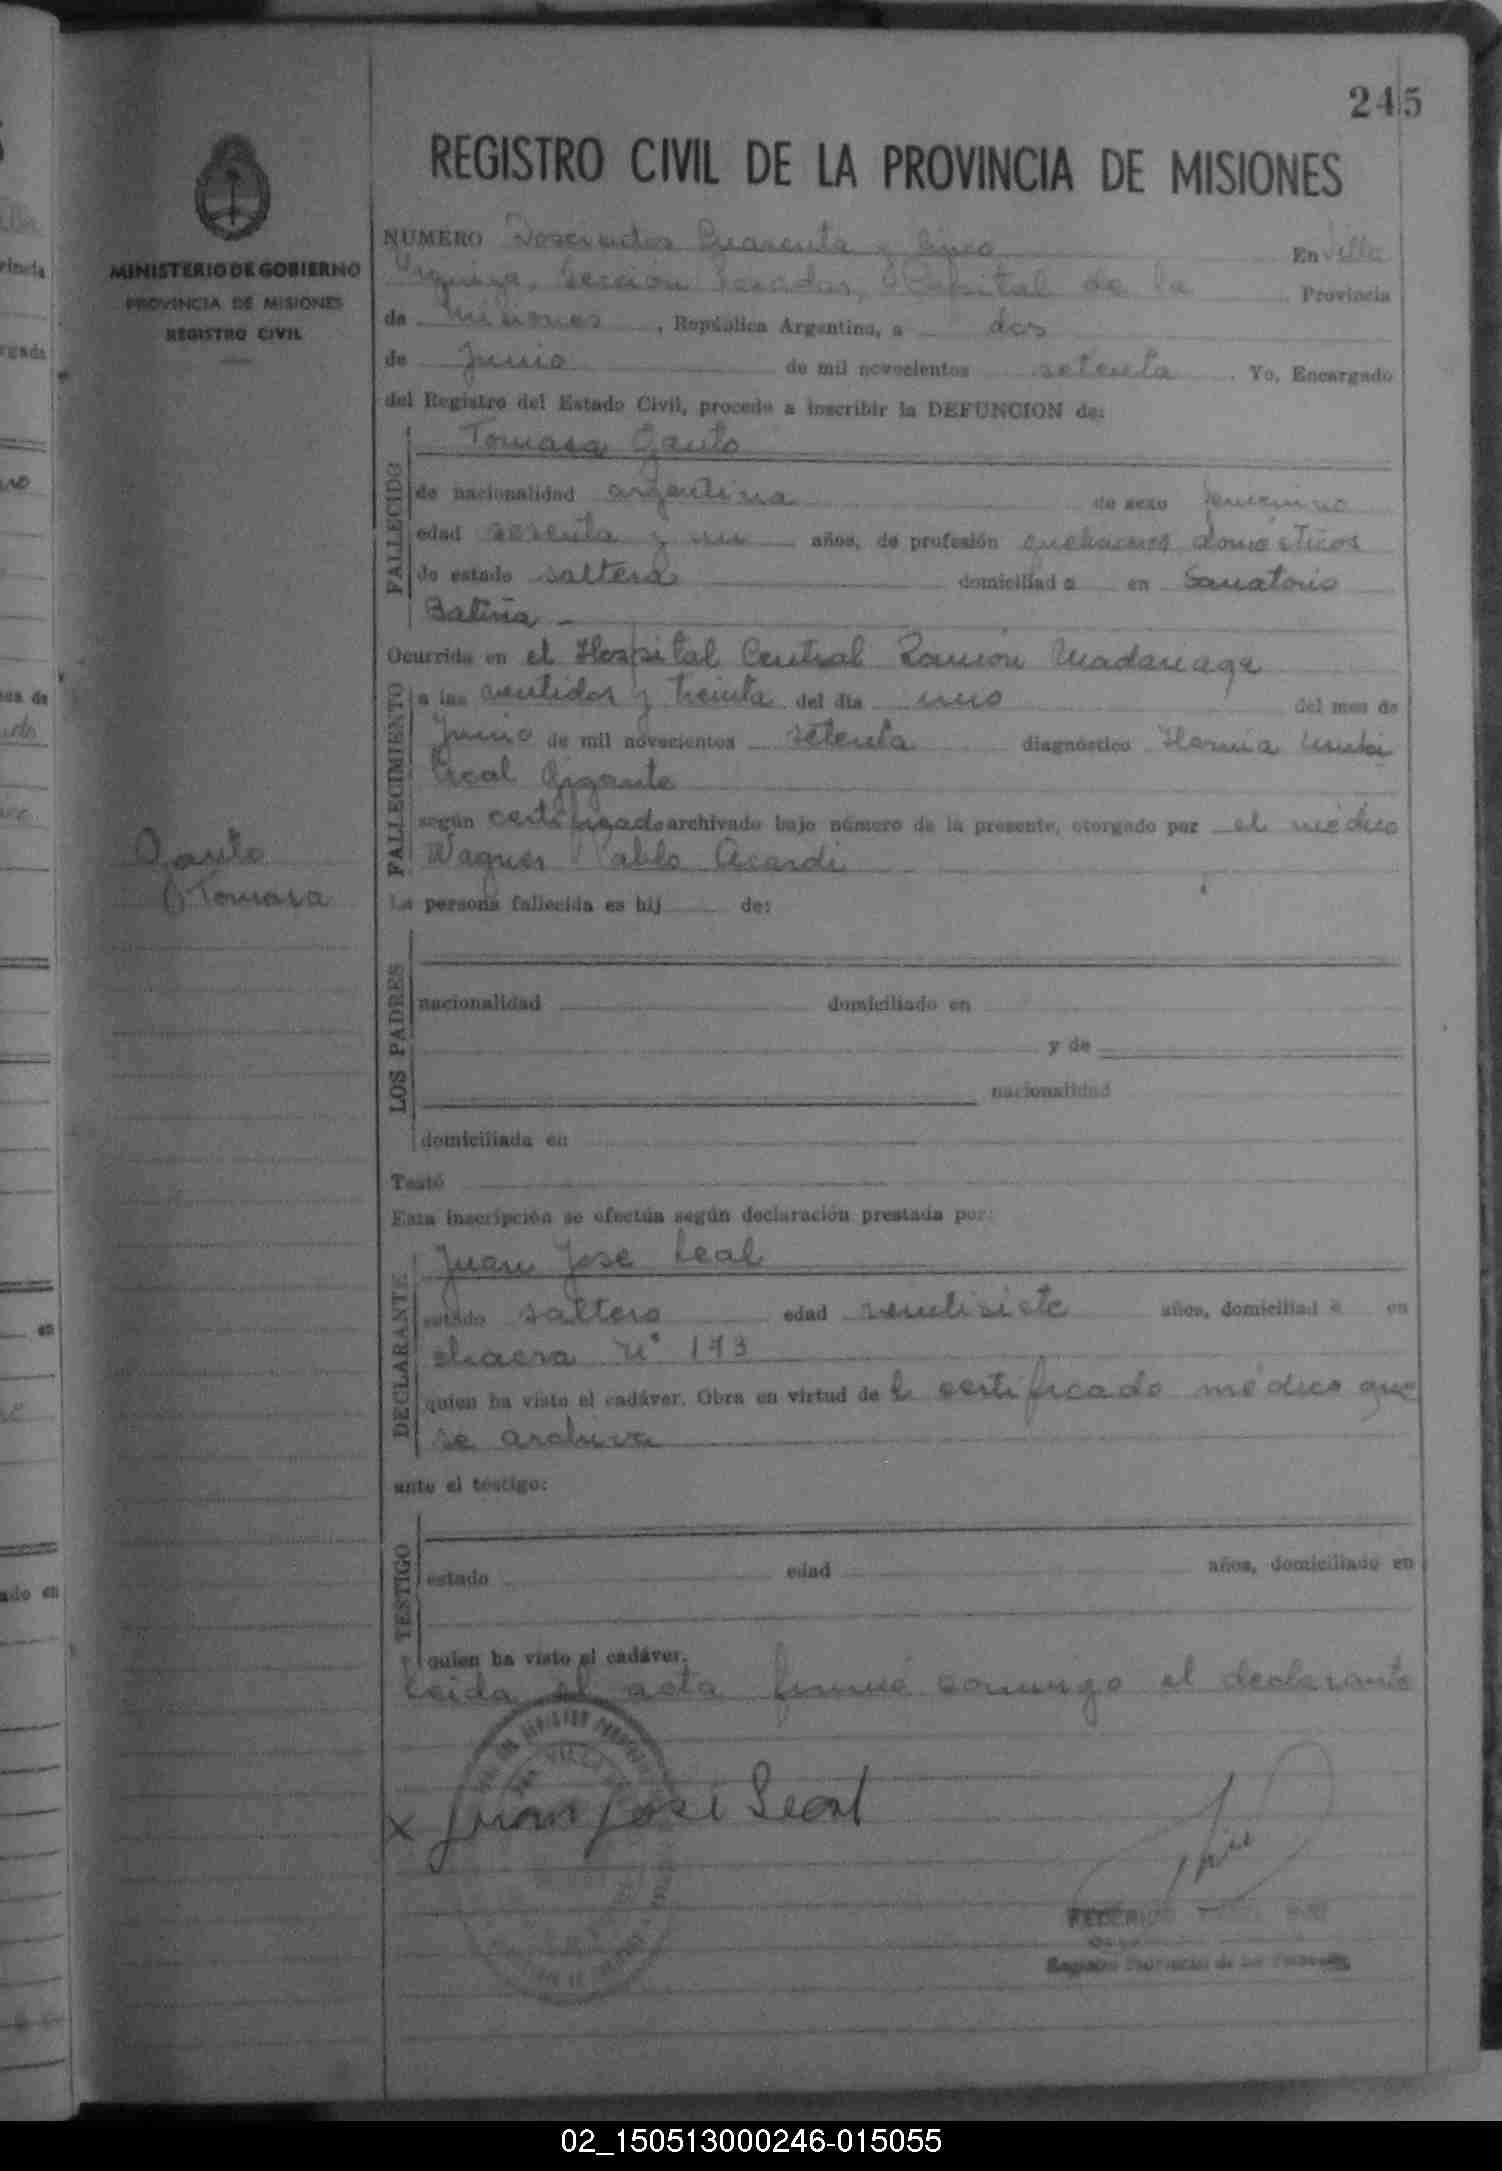 245
REGISTRO CIVIL DE LA PROVINCIA DE MISIONES
MINISTERIO DE GOBIERNO
PROVINCIA DE MISIONES
REGISTRO CIVIL
NUMERO Doscientos Cuarenta y Cinco En Villa
Urquiza, Sección Posadas, Capital de la Provincia
de Misiones, República Argentina, a dos
de Junio de mil novecientos setenta. Yo, Encargado
del Registro del Estado Civil, procedo a inscribir la DEFUNCION de:
FALLECIDO
Tomasa Gauto
de nacionalidad argentina de sexo femenino
edad sesenta y un años, de profesión quehaceres domésticos
de estado soltera domiciliada en Sanatorio
Ocurrida en el Hospital Central Ramón Madariaga
FALLECIMIENTO
a las veintidos y treinta del día uno del mes de
Junio de mil novecientos setenta diagnóstico Hernia Umbi
lical Gigante
según certificado archivado bajo número de la presente, otorgado por el médico
Wagner Pablo Acardi
Gauto
Tomasa
La persona fallecida es hij de:
LOS PADRES
nacionalidad domiciliado en
y de
nacionalidad
domiciliada en
Testó
Esta inscripción se efectúa según declaración prestada por:
DECLARANTE
Juan Jose Leal
estado soltero edad veintisiete años, domiciliado en
chacra Nº 173
quien ha visto el cadáver. Obra en virtud del certificado médico que
se archiva
ante el testigo:
TESTIGO
estado edad años, domiciliado en
quien ha visto el cadáver.
Leida el acta firmó conmigo el declarante
x Juan José Leal
FEDERICO
Registro Provincial de las Personas
02_150513000246-015055